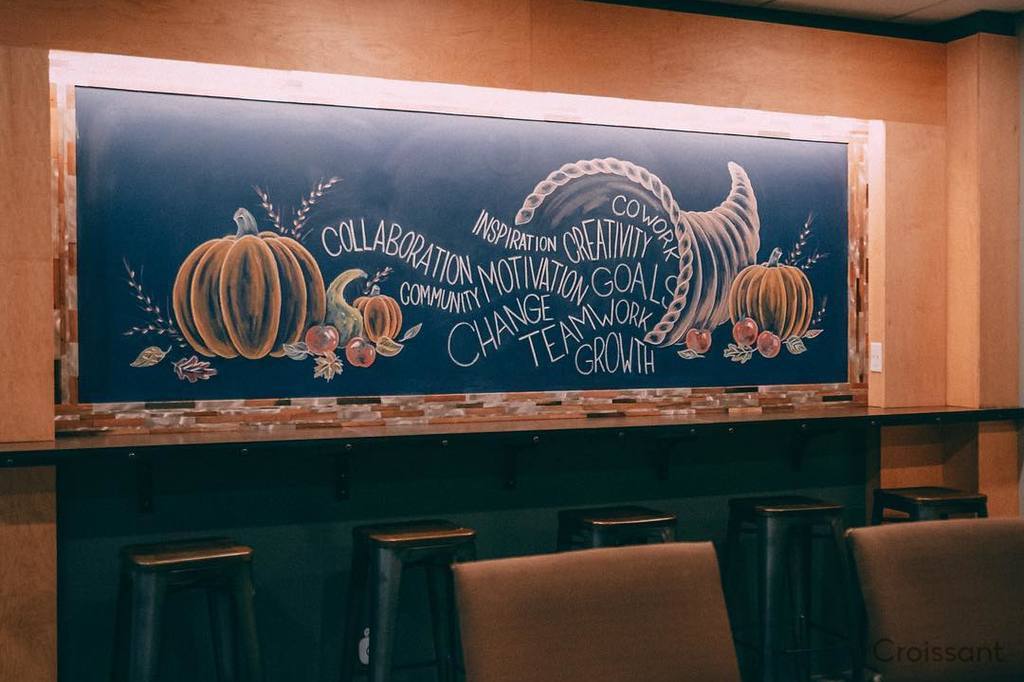 COLLABORATION
COMMUNITY
INSPIRATION
MOTIVATION
CHANGE
TEAMWORK
GROWTH
GOALS
CREATIVITY
COWORK
Croissant